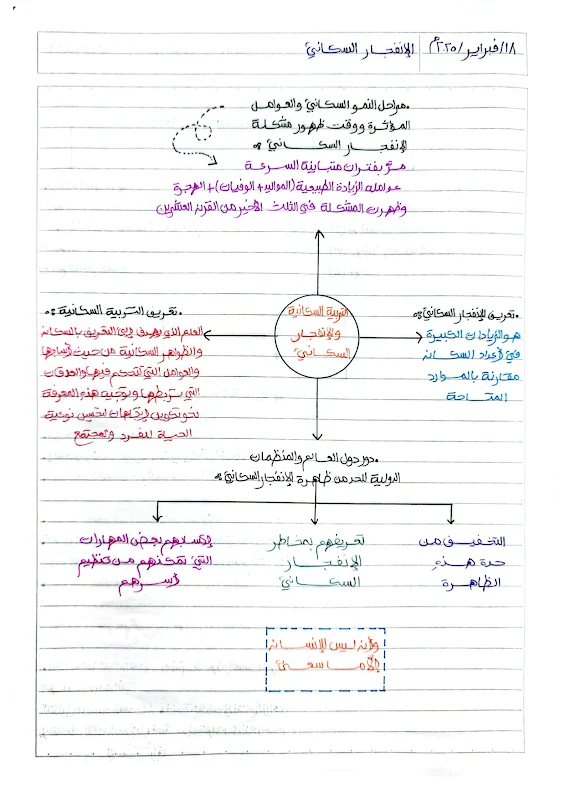 ١٨/فبراير/٢٠٢٥م
الإنفجار السكاني
•مراحل النمو السكاني والعوامل
المؤثرة ووقت ظهور مشكلة
الإنفجار السكاني :
مرّ بفترات متباينة السرعة
عوامله الزيادة الطبيعية (المواليد + الوفيات) + الهجرة
وظهرت المشكلة في الثلث الأخير من القرن العشرين
•تعريف الإنفجار السكاني :
هو الزيادات الكبيرة
في أعداد السكان
مقارنة بالموارد
المتاحة
التربية السكانية
والإنفجار
السكاني
•تعريف التربية السكانية :
العلم الذي يهدف إلى التعريف بالسكان
والظواهر السكانية من حيث أنماطها
والعوامل التي تتحكم فيها والعلاقات
التي تربطها وتوجيه هذه المعرفة
نحو تكوين إتجاهات لتحسين نوعية
الحياة للفرد والمجتمع
•دور دول العالم والمنظمات
الدولية للحد من ظاهرة الإنفجار السكاني :
التخفيف من
حدة هذه
الظاهرة
تعريفهم بمخاطر
الإنفجار
السكاني
إكسابهم بعض المهارات
التي تمكنهم من تنظيم
أسرهم
وأن ليس للإنسان
إلّا ما سعى